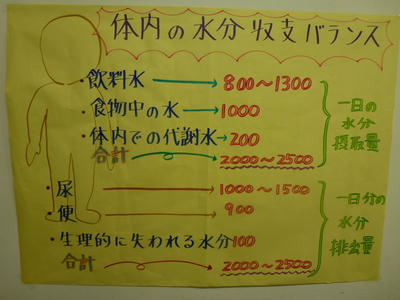 体内の水分収支バランス
・飲料水→800〜1300
・食物中の水→1000
・体内での代謝水→200
合計→2000〜2500
一日の
水分
摂取量
・尿→1000〜1500
・便→900
・生理的に失われる水分100
合計→2000〜2500
一日分の
水分
排出量